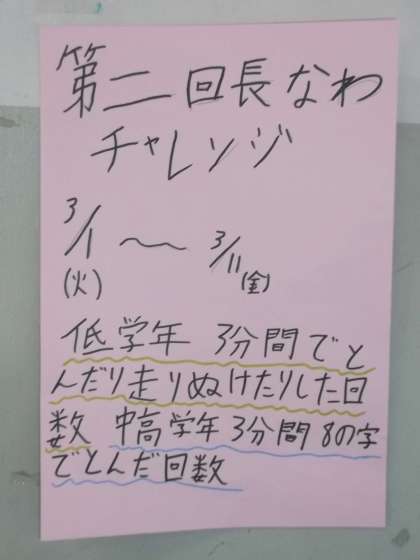 第二回長なわ
チャレンジ
3/1 〜 3/11
(火) (金)
低学年 3分間でと
んだり走りぬけたりした回
数 中高学年3分間8の字
でとんだ回数